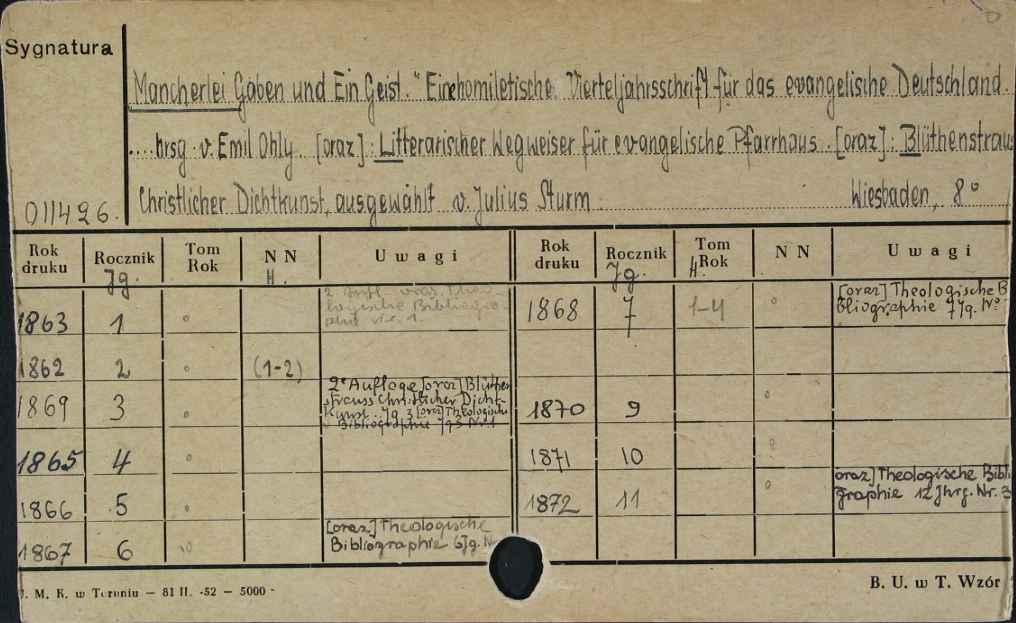 Sygnatura
Mancherlei Gaben und Ein Geist." Eine homiletische Vierteljahrsschrift für das evangelische Deutschland.
....hrsg. v. Emil Ohly. [oraz]: Litterarischer Wegweiser für evangelische Pfarrhaus. [oraz]: Blüthenstrau
Christlicher Dichtkunst, ausgewählt v. Julius Sturm Wiesbaden, 8°
011426.
Rok druku Rocznik Tom Rok N N Uwagi Rok druku Rocznik Tom Rok N N Uwagi
Jg. H. Jg. H.
1863 1 2 Aufl. oraz Theologische Bibliographie 1868 7 1-4 [oraz] Theologische B
bliographie 7 Jg. N°
1862 2 (1-2)
1869 3 2e Auflage [oraz] Blüthen
strauss Christlicher Dicht-
kunst. Jg. 3 [oraz] Theologische
Bibliographie Jg 3 Nr 1
1870 9
1865 4 1871 10
1866 5 1872 11 oraz] Theologische Bibli
graphie 12 Jhrg. Nr. 3
1867 6 [oraz] Theologische
Bibliographie 6 Jg. N
J. M. K. w Toruniu — 81 II. -52 — 5000 -
B. U. w T. Wzór